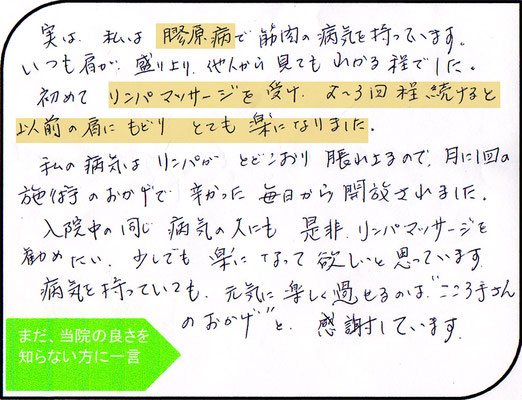 実は、私は膠原病で筋肉の病気を持っています。
いつも肩が、盛り上り、他人から見てもわかる程でした。
初めてリンパマッサージを受け、2〜3回程続けると
以前の肩にもどりとても楽になりました。
私の病気はリンパがとどこおり腫れ上るので、月に1回の
施術のおかげで辛かった毎日から開放されました。
入院中の同じ病気の人にも是非、リンパマッサージを
勧めたい、少しでも楽になって欲しいと思っています。
病気を持っていても、元気に楽しく過せるのは、"こころ手さん
のおかげ"と、感謝しています。
まだ、当院の良さを
知らない方に一言